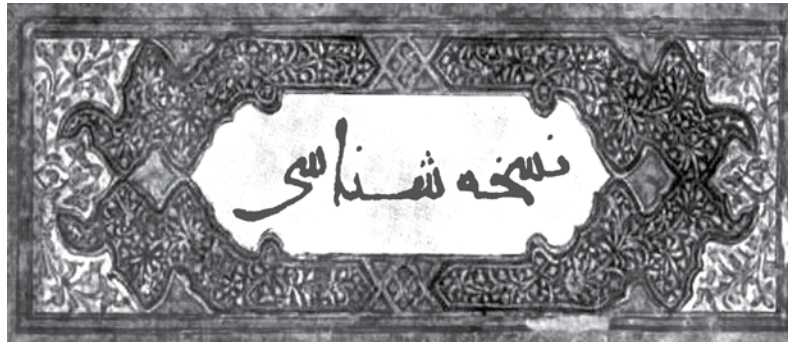 نسخه شناسی